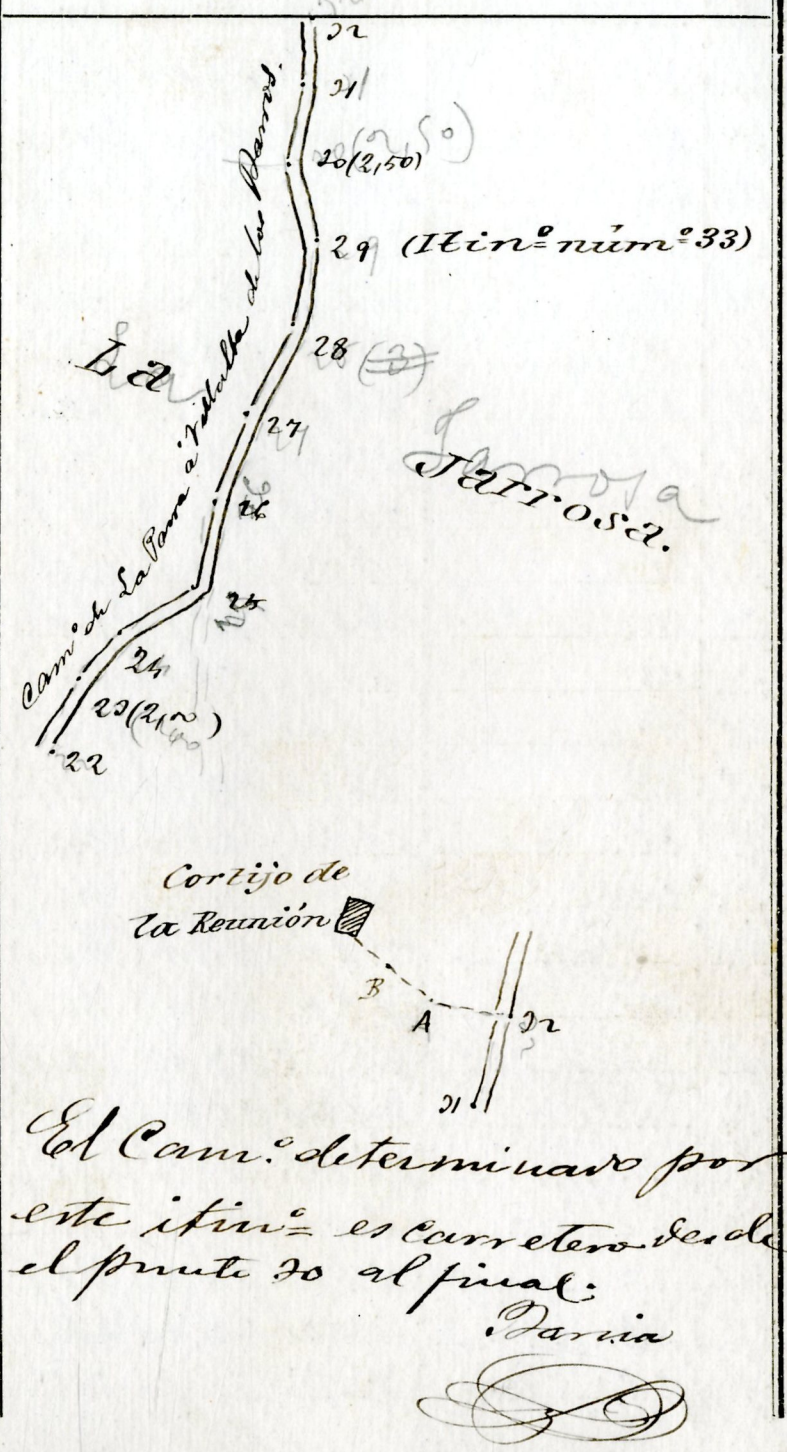 32
31
30 (2,50)
29 (Itinº númº 33)
28 (3)
La
Jarrosa.
27
26
25
24
23 (2,50)
22
Camº de La Parra á Villalba de los Barros.
Cortijo de
la Reunión
B
A
32
31
El Camº determinado por
este itinº es carretero desde
el punto 30 al final.